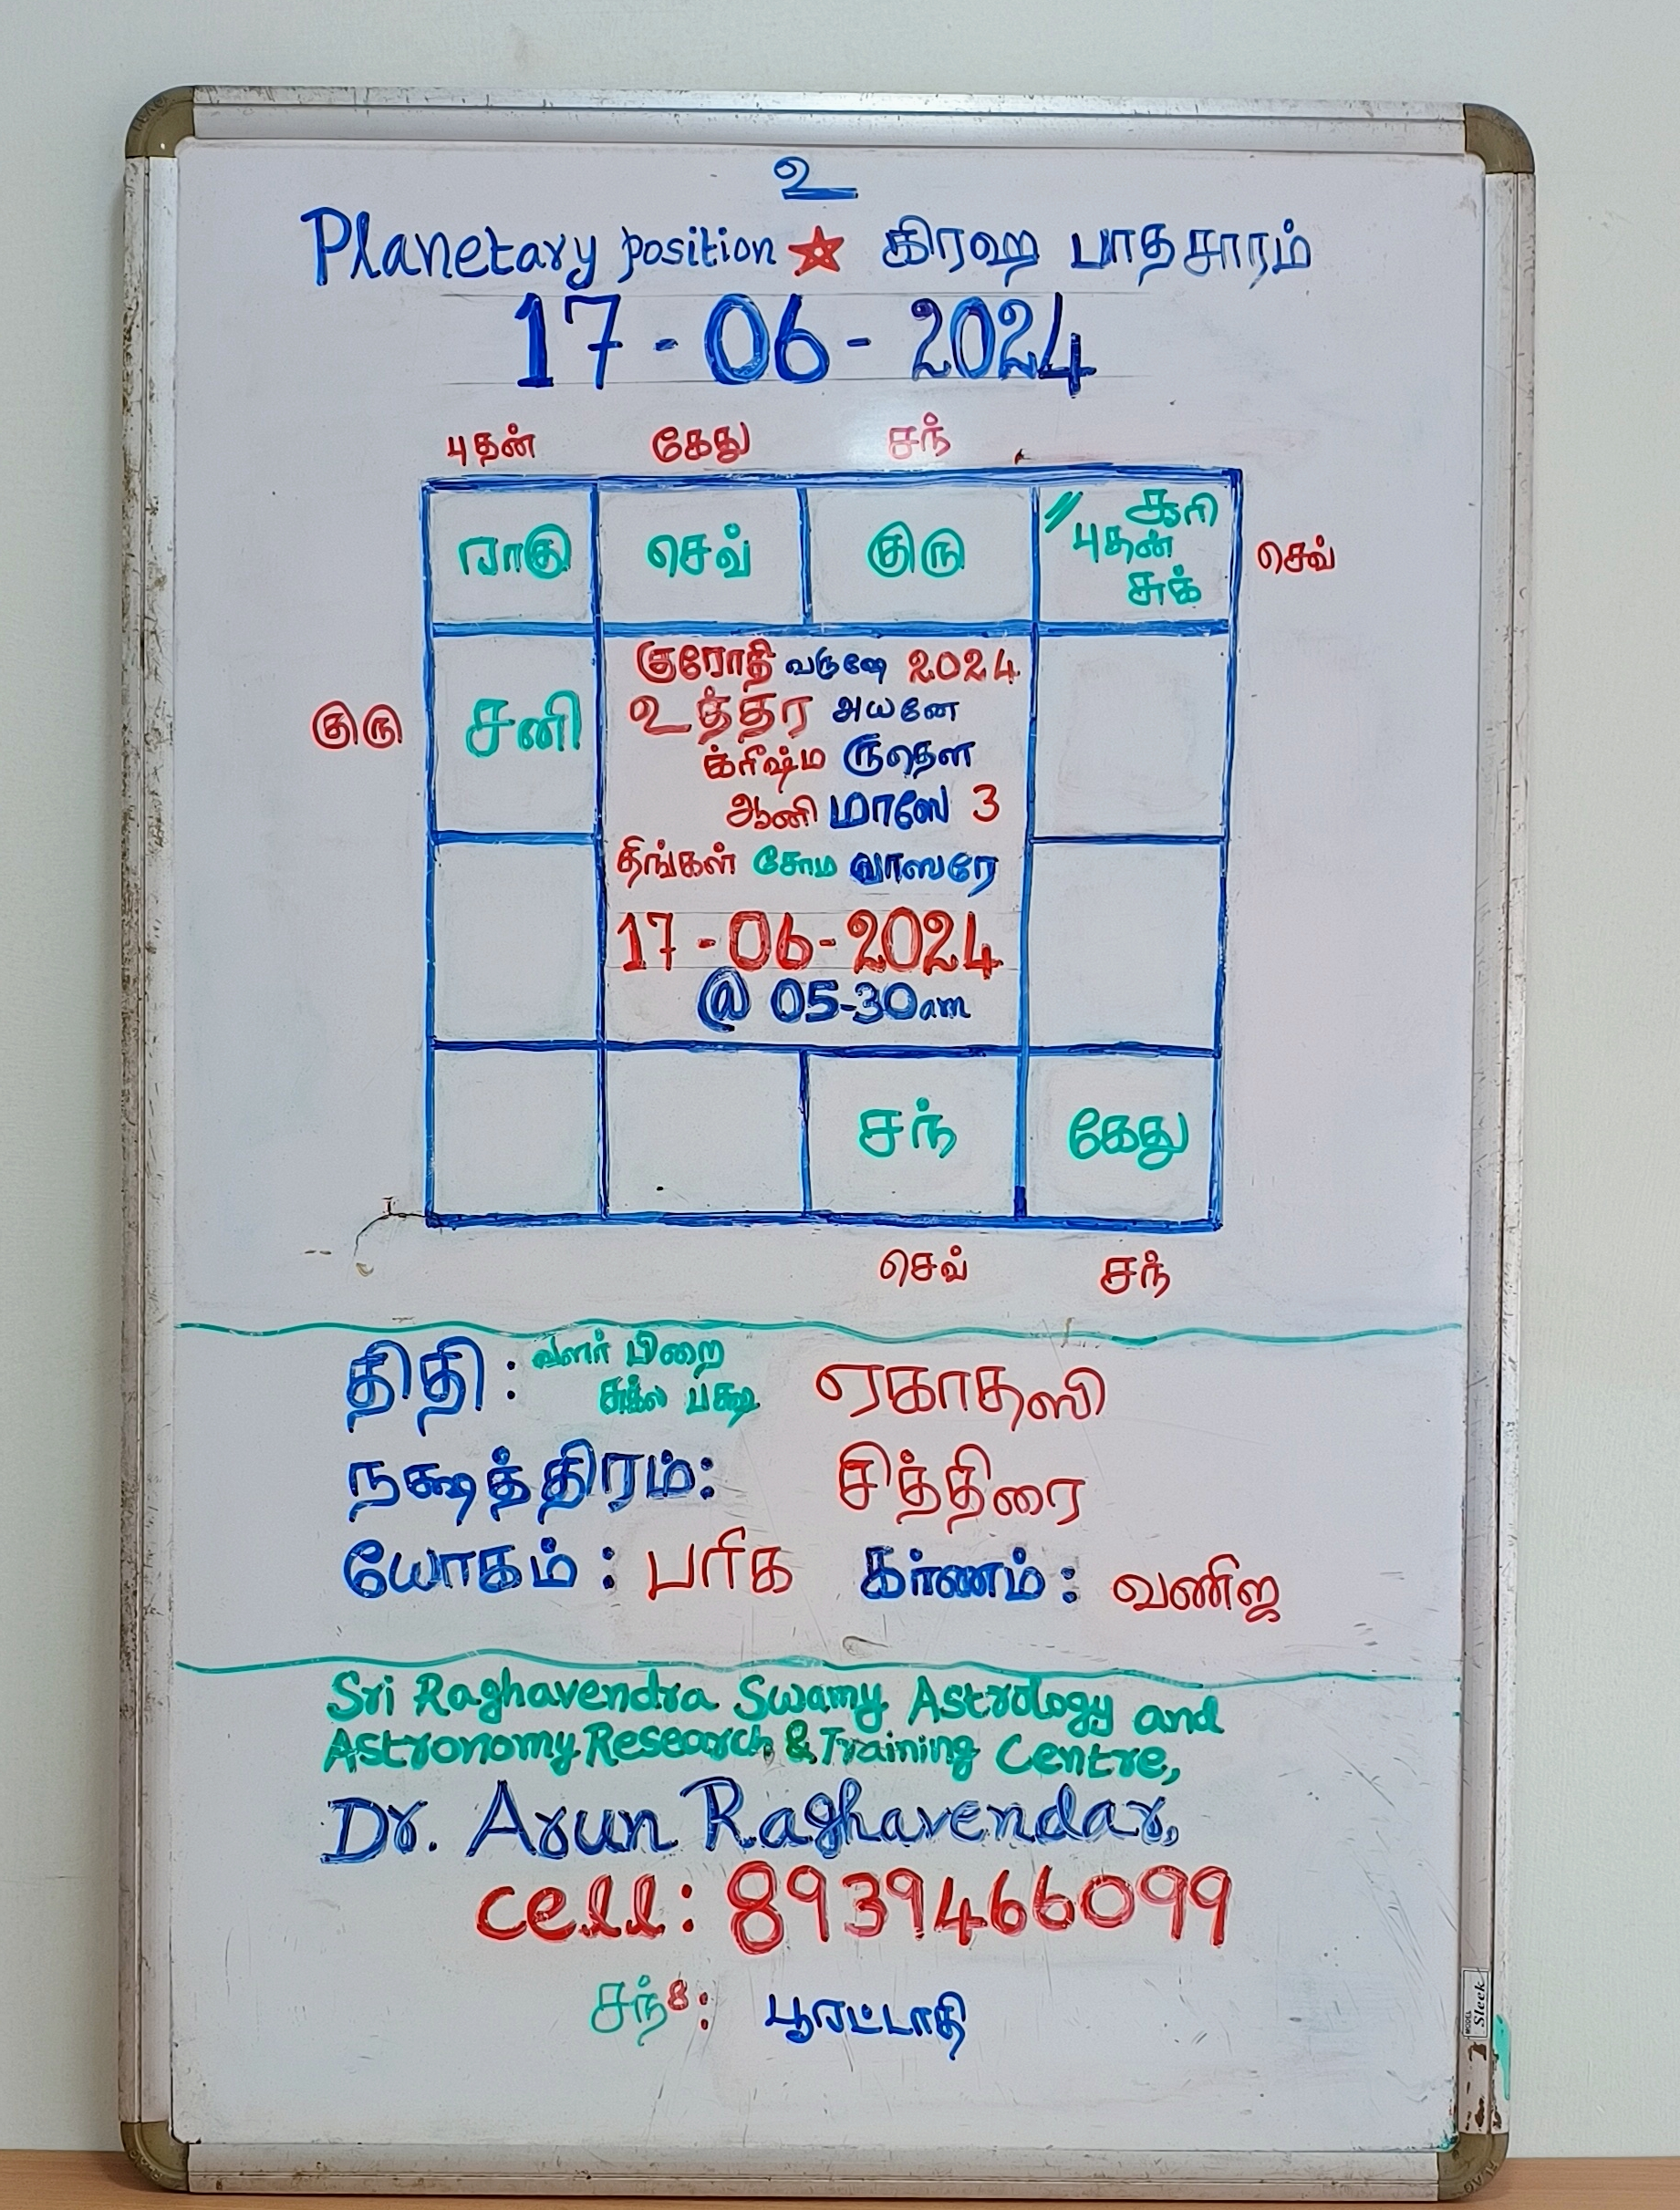 உ
Planetary position ★ கிரஹ பாதசாரம்
17-06-2024
புதன் கேது சந்
ராகு செவ் குரு சூரி
புதன்
சுக்
செவ்
குரு
சனி
குரோதி வருஷே 2024
உத்தர அயனே
க்ரீஷ்ம ருதௌ
ஆனி மாஸே 3
திங்கள் சோம வாஸரே
17-06-2024
@ 05-30am
சந் கேது
செவ் சந்
திதி: வளர் பிறை ஏகாதஸி
சுக்ல பக்ஷ
நக்ஷத்திரம்: சித்திரை
யோகம்: பரிக கர்ணம்: வணிஜ
Sri Raghavendra Swamy Astrology and
Astronomy Research & Training Centre,
Dr. Arun Raghavendar,
cell: 8939466099
சந்8: பூரட்டாதி
MODEL Sleek